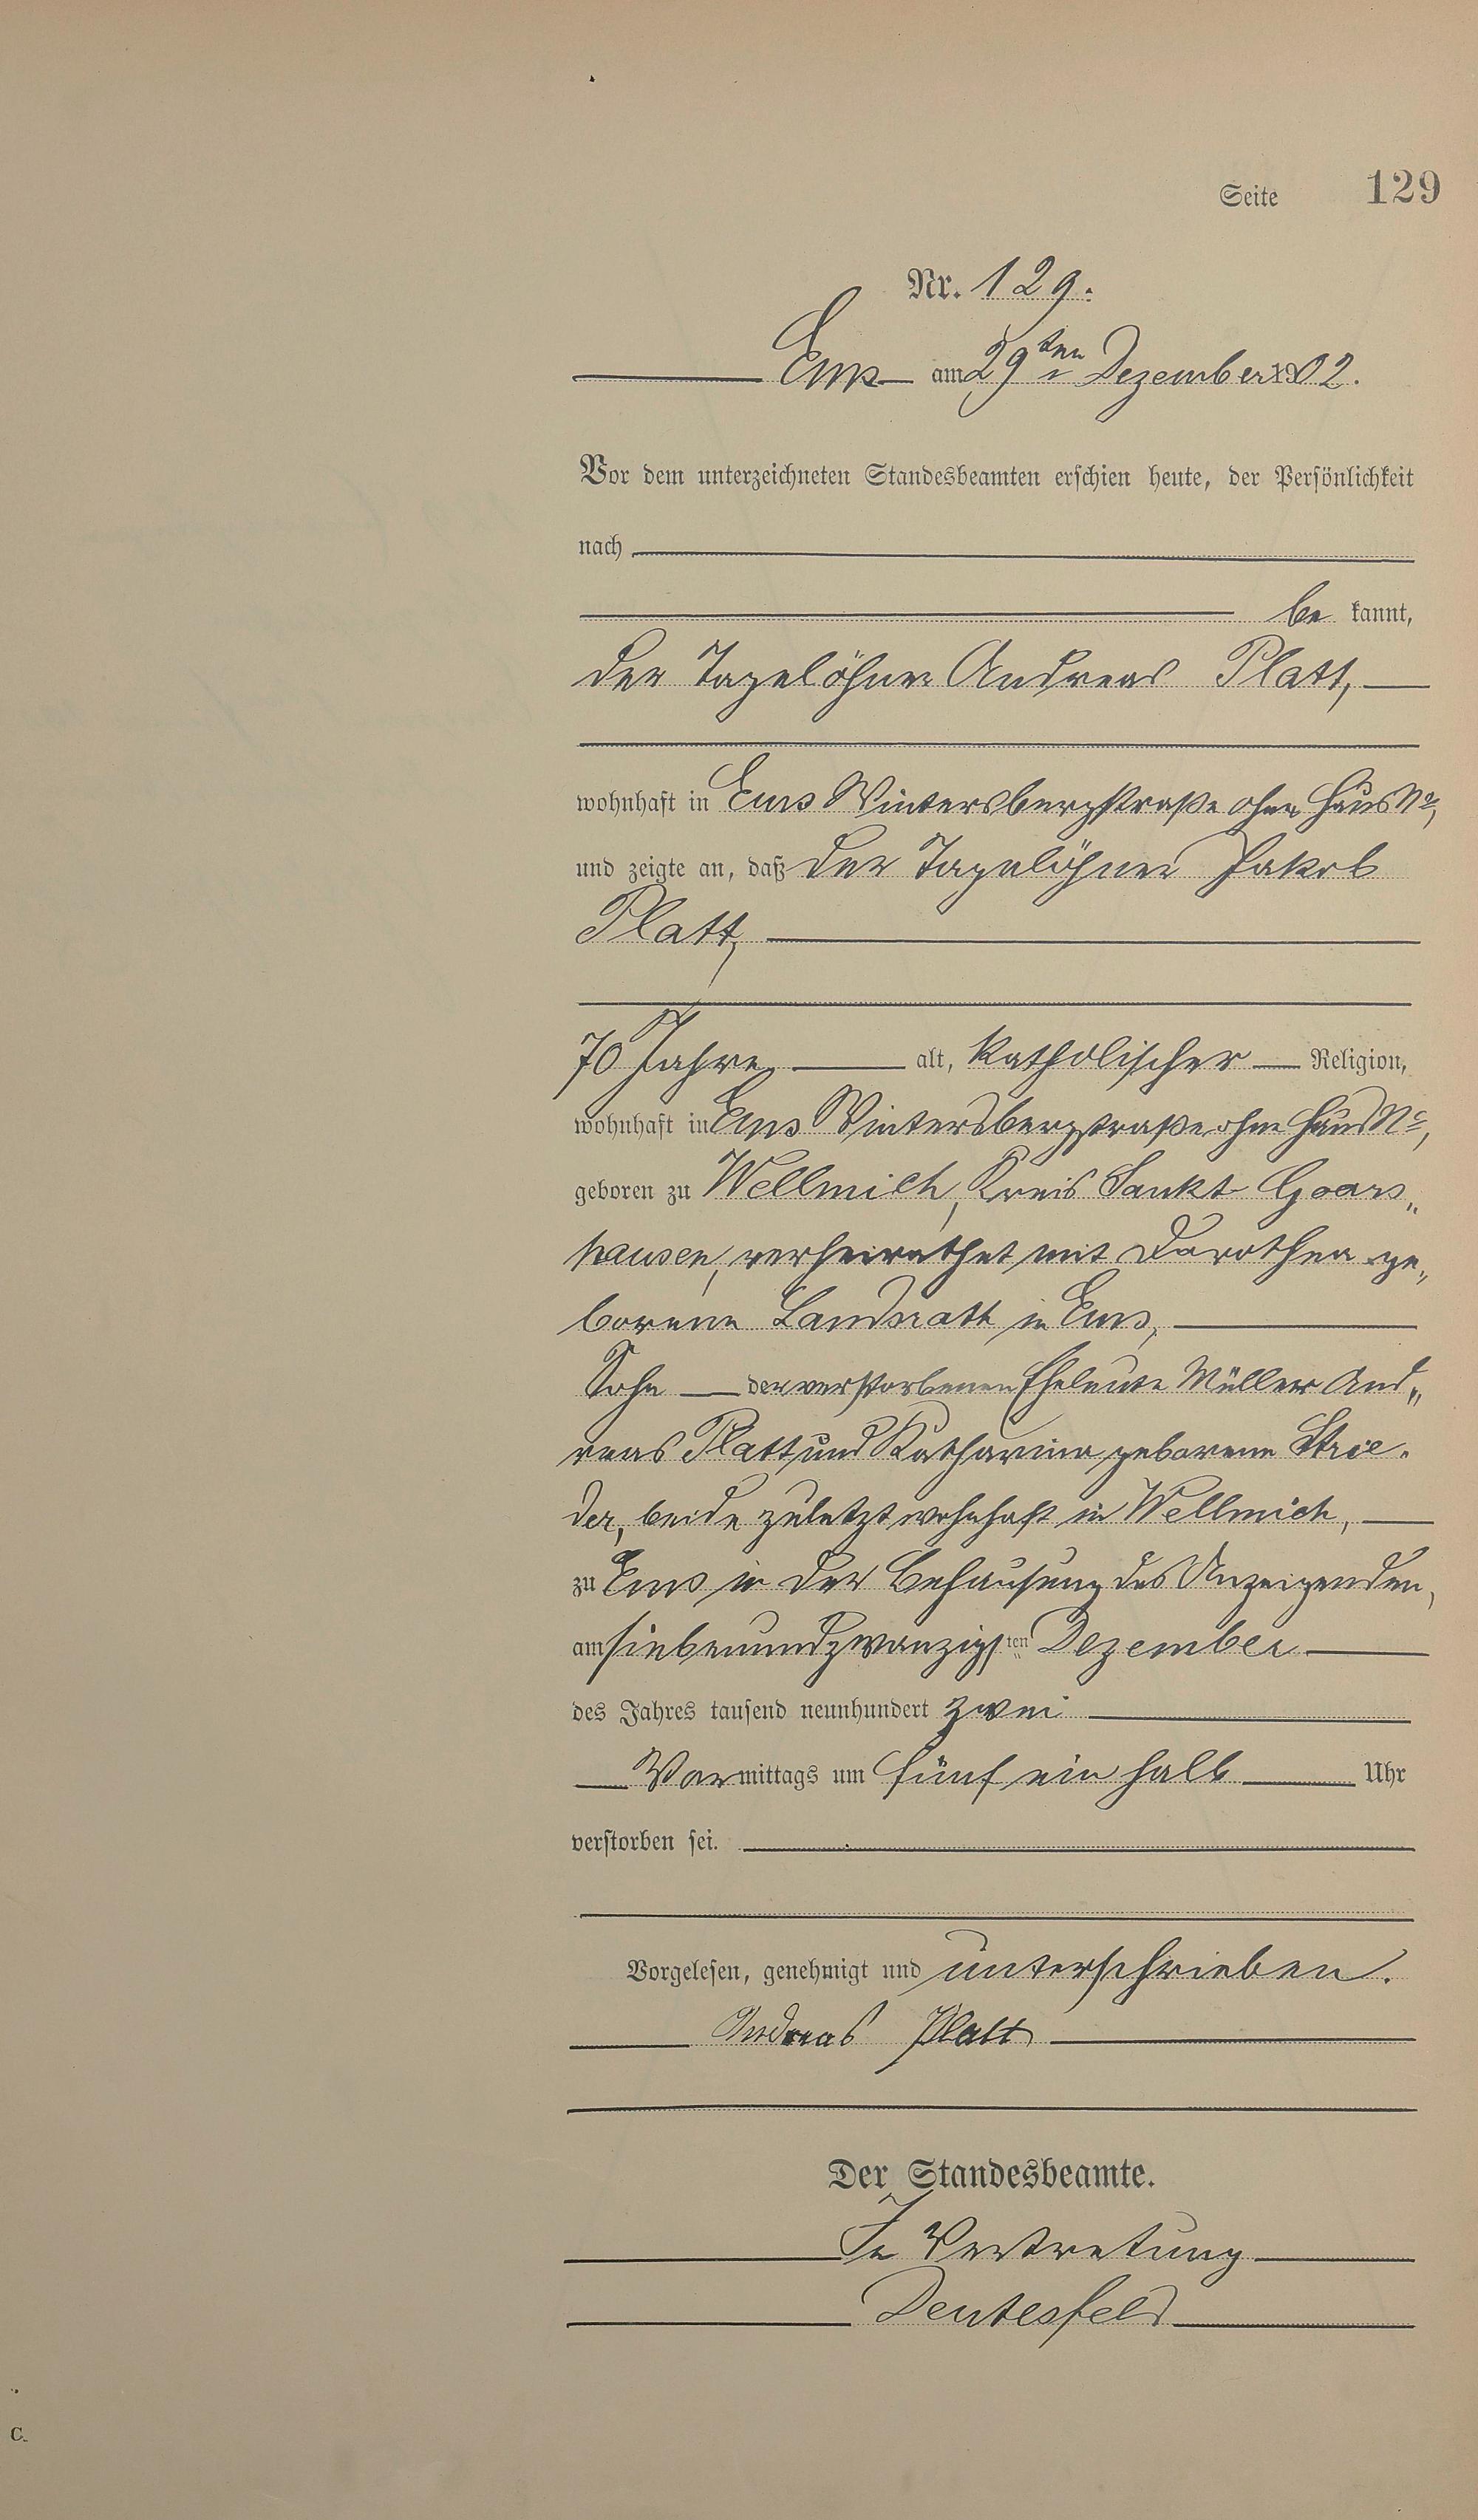 Seite 129
Nr. 129.
Ems am 29ten Dezember 1902.
Vor dem unterzeichneten Standesbeamten erschien heute, der Persönlichkeit
nach
be kannt,
der Tagelöhner Andreas Platt,
wohnhaft in Ems Wintersbergstraße ohne Haus No,
und zeigte an, daß der Tagelöhner Jakob
Platt,
70 Jahre alt, katholischer Religion,
wohnhaft in Ems Wintersbergstraße ohne Haus No,
geboren zu Wellmich, Kreis Sankt Goars„
hausen, verheirathet mit Dorothea ge„
borene Landsrath in Ems,
Sohn der verstorbenen Eheleute Müller And„
reas Platt und Katharina geborene Strie„
der, beide zuletzt wohnhaft in Wellmich,
zu Ems in der Behausung des Anzeigenden,
am siebenundzwanzigsten Dezember
des Jahres tausend neunhundert zwei
Vormittags um fünf ein halb Uhr
verstorben sei.
Vorgelesen, genehmigt und unterschrieben.
Andreas Platt
Der Standesbeamte.
In Vertretung
Deutesfeld
C.